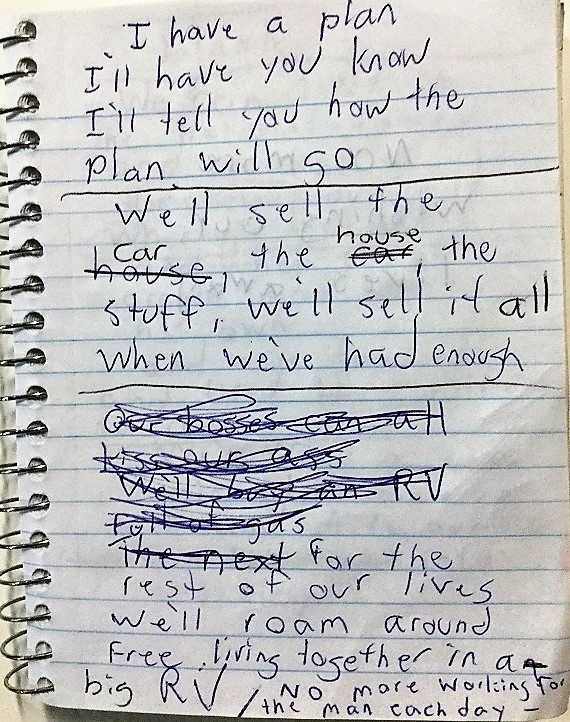 I have a plan
I'll have you know
I'll tell you how the
plan will go
We'll sell the
car house
house, the car, the
stuff, we'll sell it all
when we've had enough
Our bosses can all
kiss our ass
We'll buy an RV
full of gas
The next for the
rest of our lives
we'll roam around
free, living together in a
big RV / No more working for
the man each day -